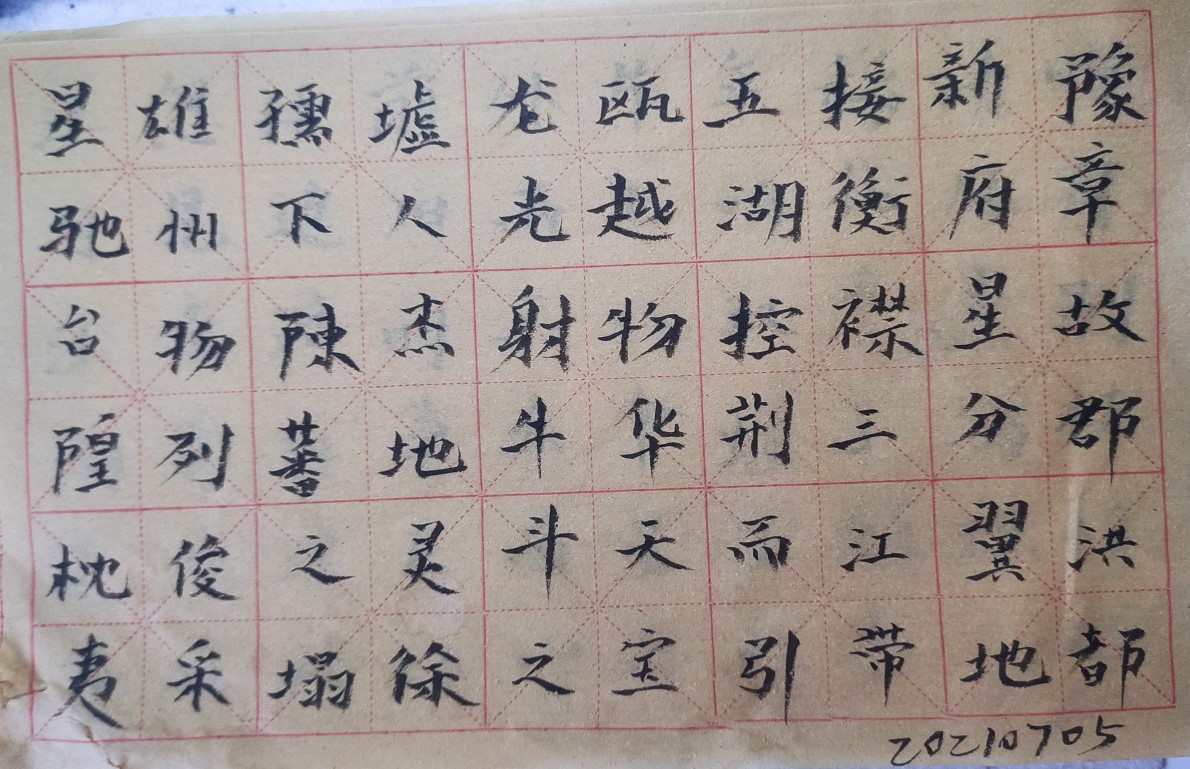 豫章故郡洪都
新府星分翼地
接衡襟三江带
五湖控荆而引
瓯越物华天宝
龙光射牛斗之
墟人杰地灵徐
孺下陈蕃之塌
雄州物列俊采
星驰台隍枕夷
20210705